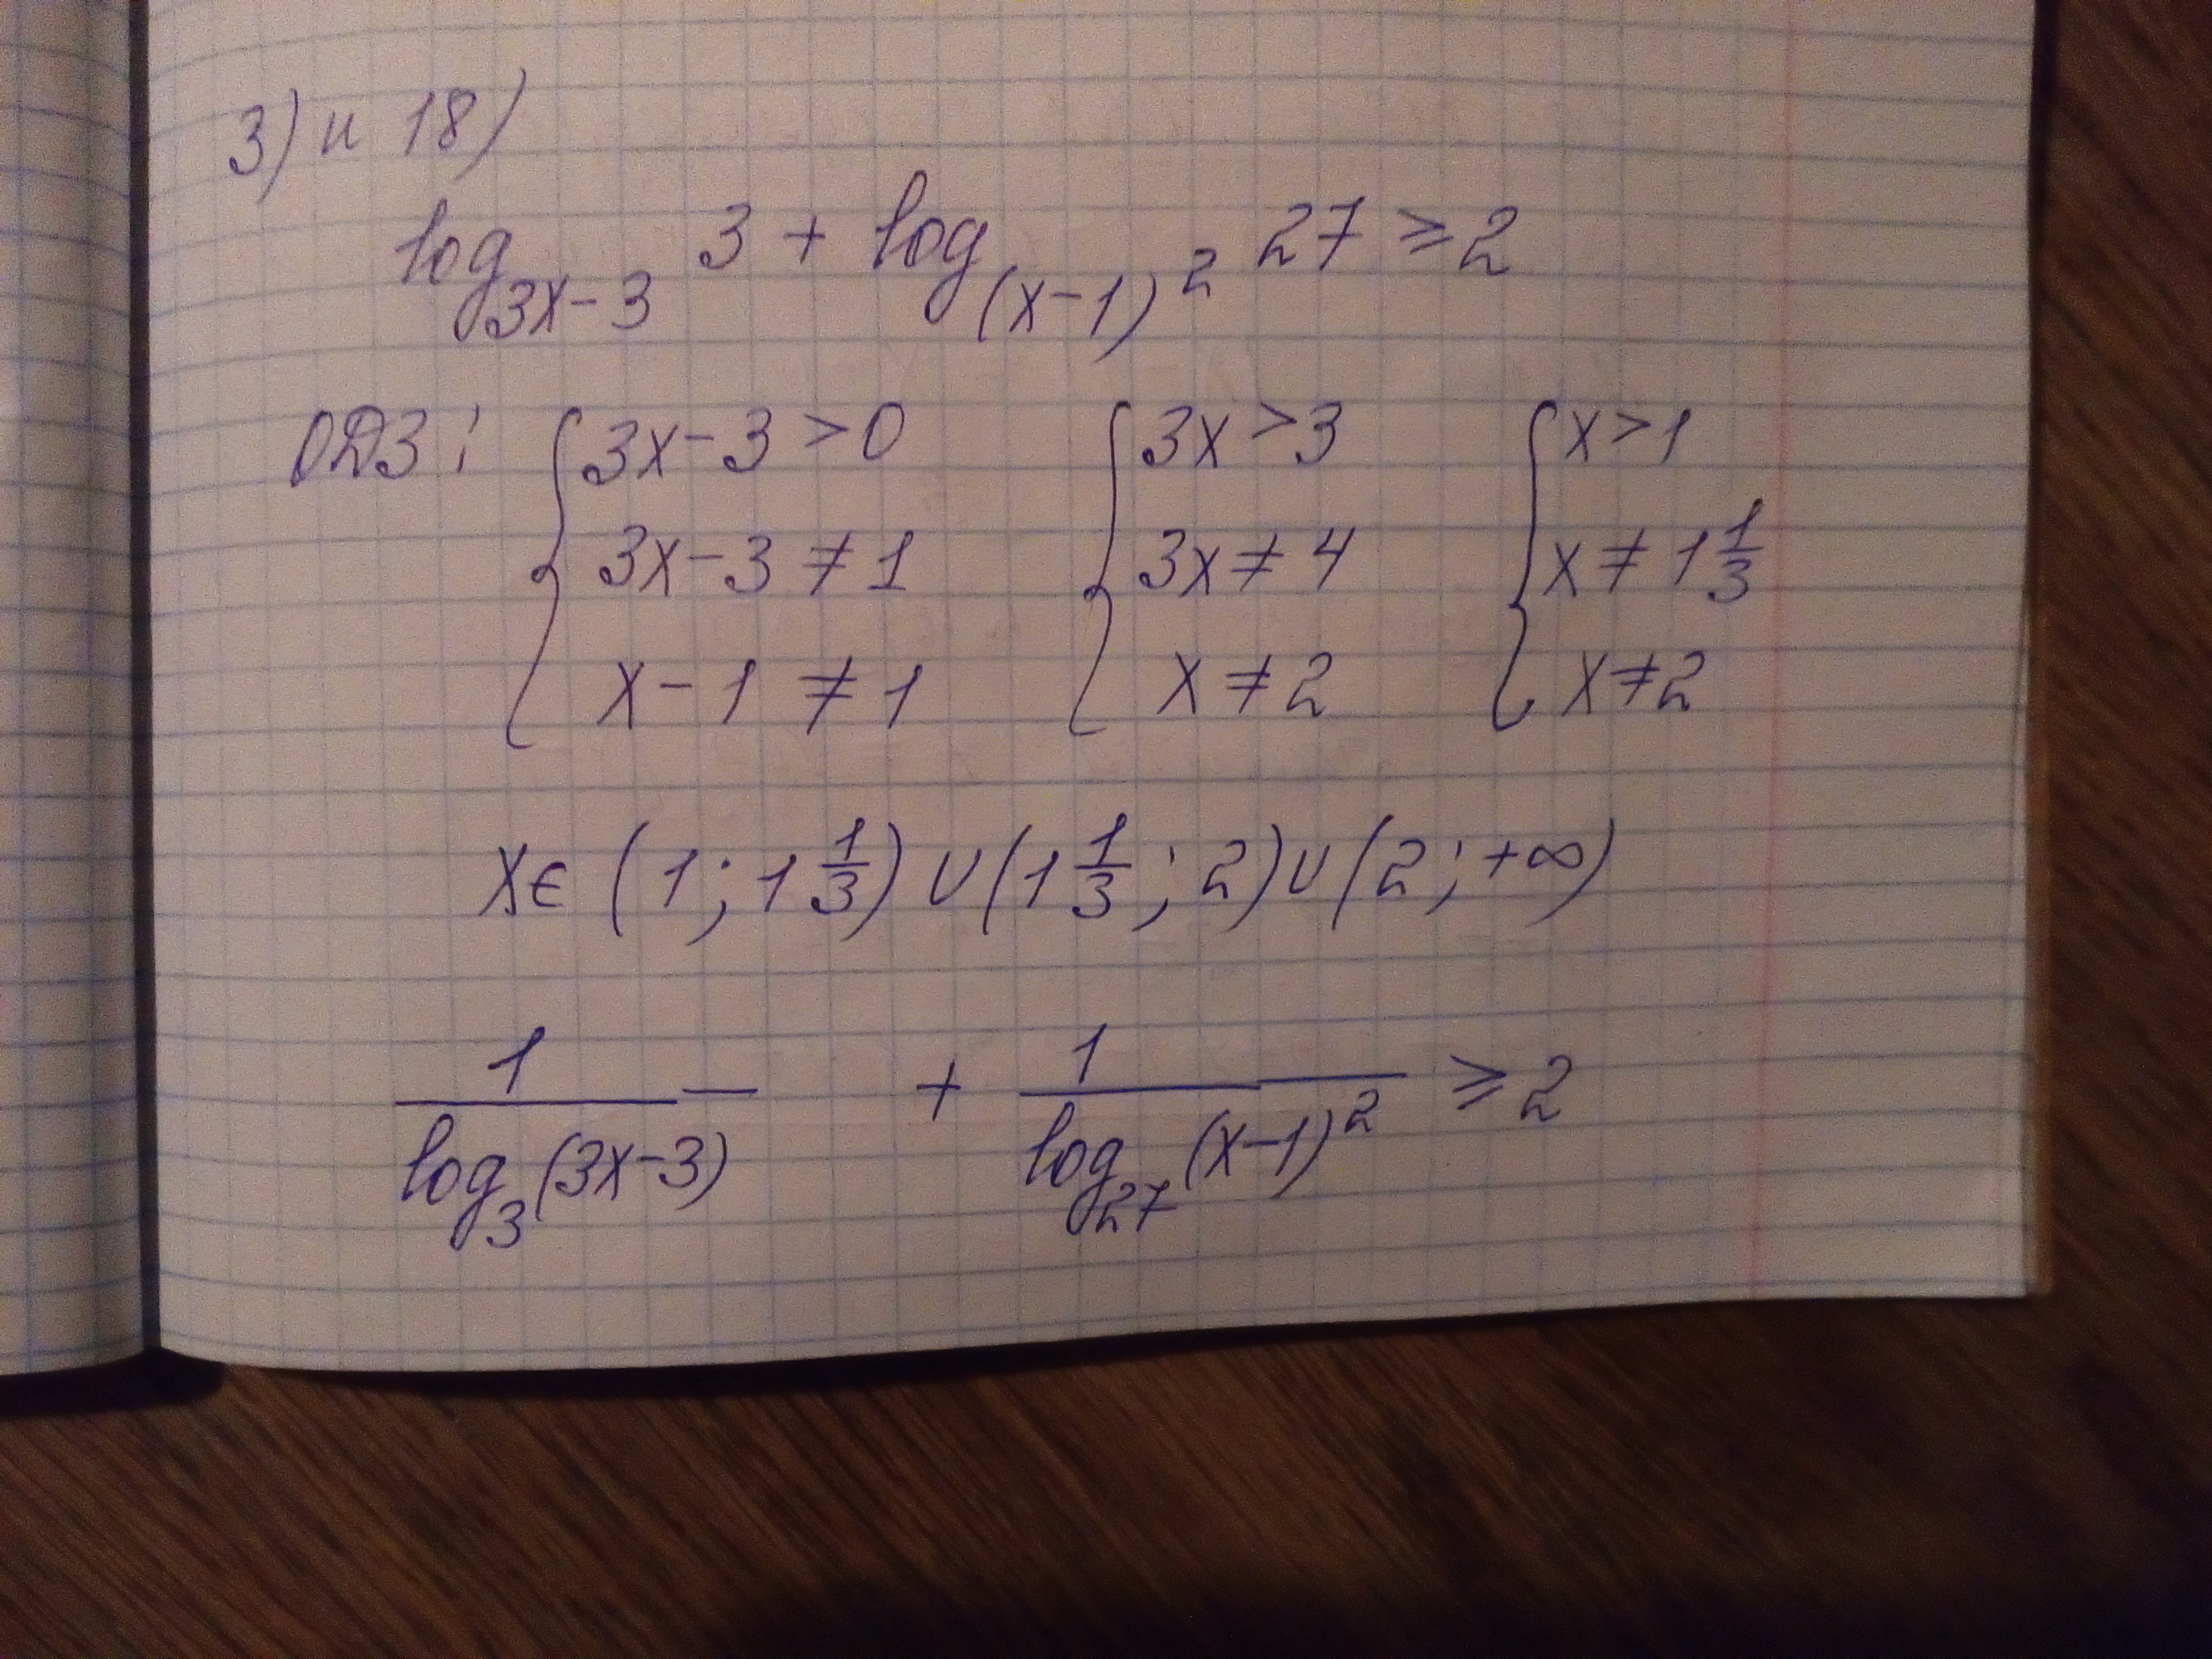 3) и 18)
log_{3x-3} 3 + log_{(x-1)^2} 27 ≥ 2
ОДЗ: { 3x-3>0 { 3x>3 { x>1
3x-3≠1 3x≠4 x≠1 1/3
x-1≠1 x≠2 x≠2
x∈(1; 1 1/3)∪(1 1/3; 2)∪(2; +∞)
1/log_3(3x-3) + 1/log_{27}(x-1)^2 ≥ 2